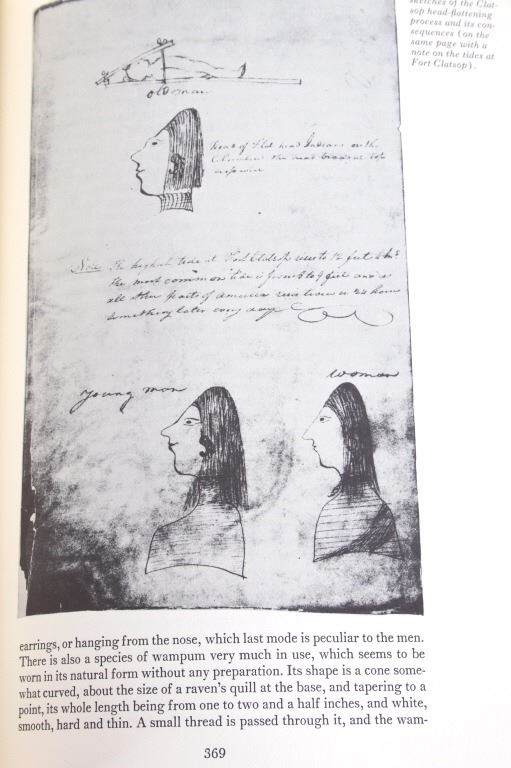 sketches of the Clat-
sop head-flattening
process and its con-
sequences (on the
same page with a
note on the tides at
Fort Clatsop).
old man
heads of Flat head Indians on the
Columbia
Note The highest tide at Fort Clatsop
the most common tide is from 8 to 9 feet
all other parts of america
something later every day
young man
woman
earrings, or hanging from the nose, which last mode is peculiar to the men.
There is also a species of wampum very much in use, which seems to be
worn in its natural form without any preparation. Its shape is a cone some-
what curved, about the size of a raven's quill at the base, and tapering to a
point, its whole length being from one to two and a half inches, and white,
smooth, hard and thin. A small thread is passed through it, and the wam-
369